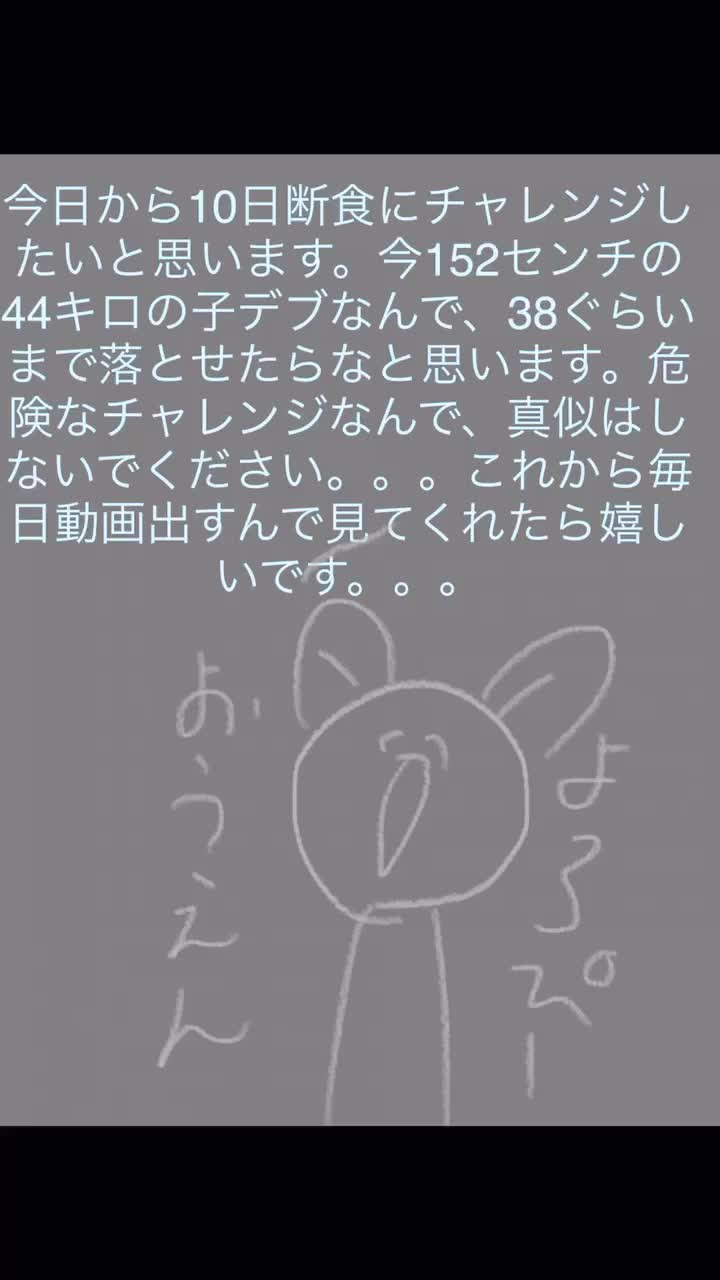 今日から10日断食にチャレンジし
たいと思います。今152センチの
44キロの子デブなんで、38ぐらい
まで落とせたらなと思います。危
険なチャレンジなんで、真似はし
ないでください。。。これから毎
日動画出すんで見てくれたら嬉し
いです。。。
よろぴー
おうえん